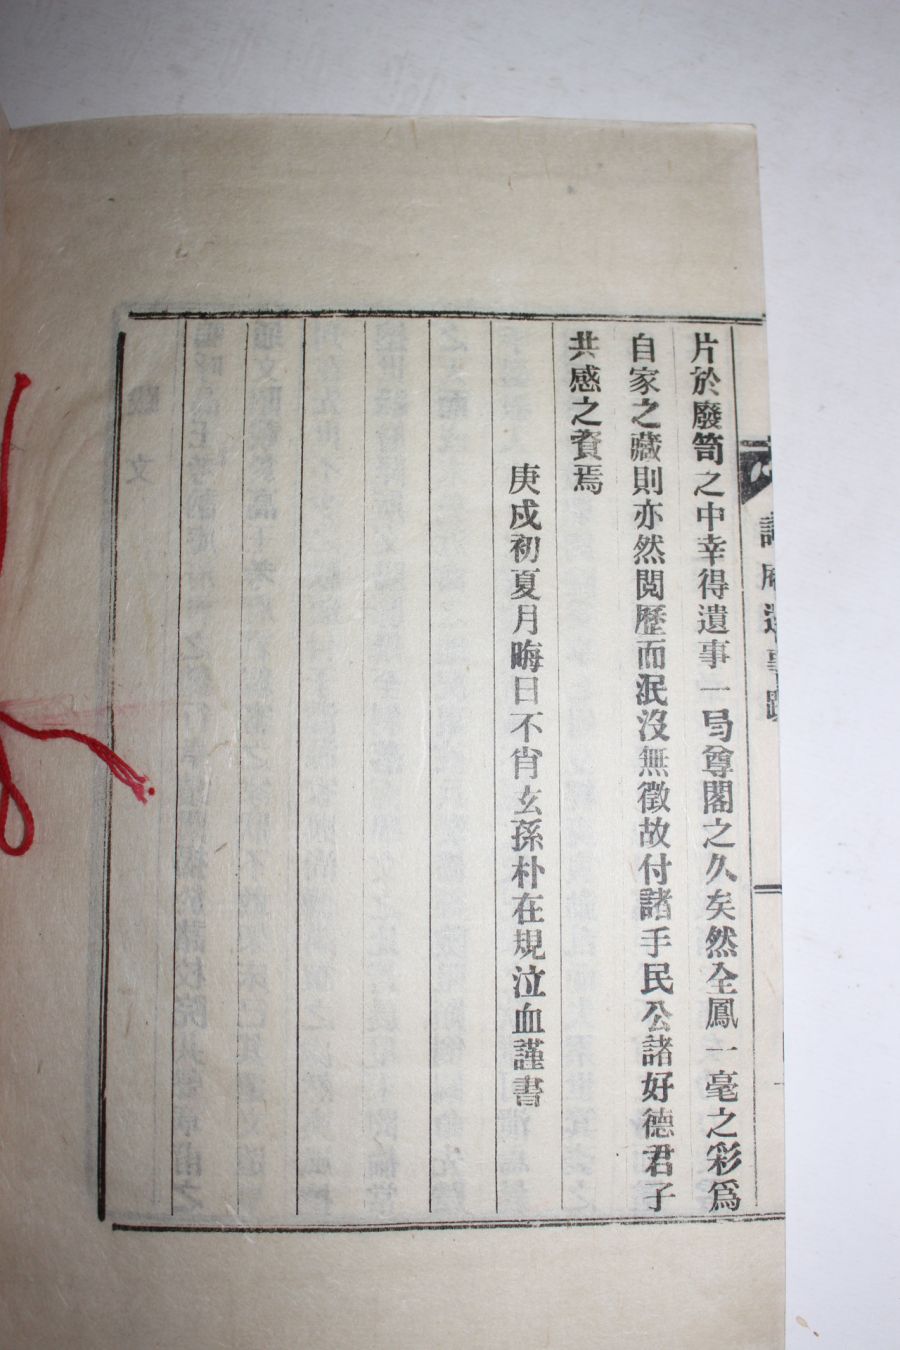 片於廢笥之中幸得遺事一局尊閣之久矣然全鳳一毫之彩爲
自家之藏則亦然閱歷而泯沒無徵故付諸手民公諸好德君子
共感之資焉
庚戌初夏月晦日不肖玄孫朴在規泣血謹書
庵遺事